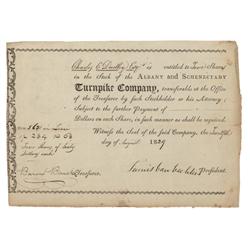 Charles E Dudley Esq. is entitled to Two Shares
in the Stock of the ALBANY AND SCHENECTADY
Turnpike Company, transferable at the Office
of the Treasurer by such Stockholder or his Attorney;
Subject to the further Payment of
Dollars on each Share, in such manner as shall be required.
Witness the Seal of the said Company, this
day of August 1829
Two Shares of
Dollars each
Treasurer.
President.